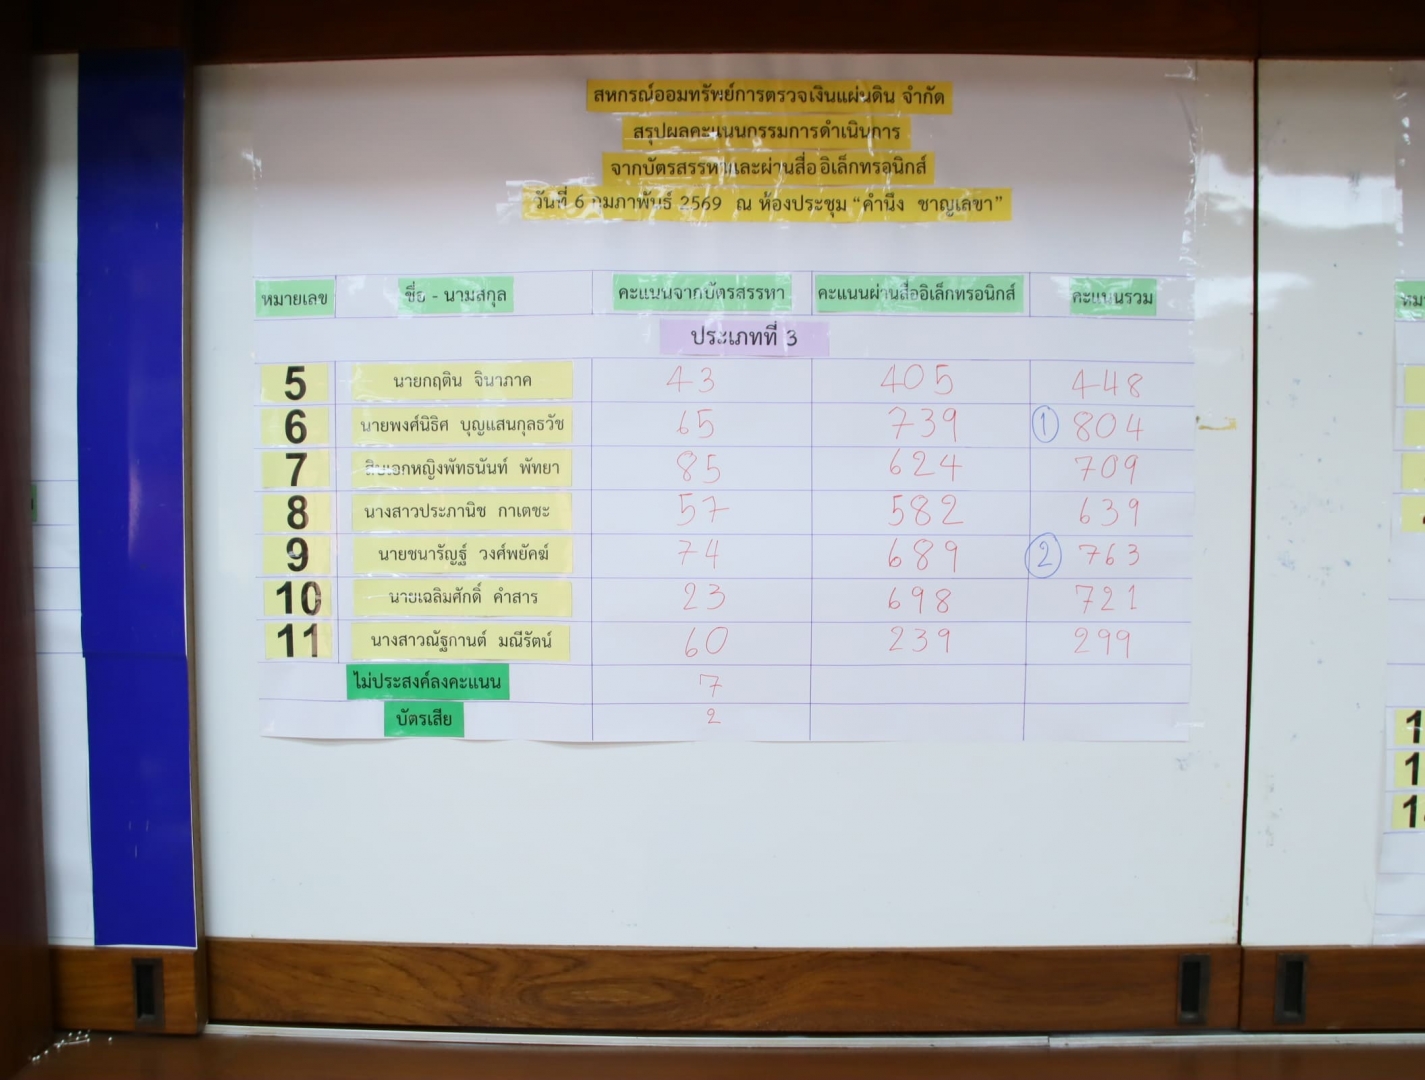 สหกรณ์ออมทรัพย์การตรวจเงินแผ่นดิน จำกัด
สรุปผลคะแนนกรรมการดำเนินการ
จากบัตรสรรหาและผ่านสื่ออิเล็กทรอนิกส์
วันที่ 6 กุมภาพันธ์ 2569 ณ ห้องประชุม “คำนึง ชาญเลขา”
หมายเลข ชื่อ - นามสกุล คะแนนจากบัตรสรรหา คะแนนผ่านสื่ออิเล็กทรอนิกส์ คะแนนรวม
ประเภทที่ 3
5 นายกฤติน จินาภาค 43 405 448
6 นายพงศ์นิธิศ บุญแสนกุลธวัช 65 739 1 804
7 สิบเอกหญิงพัทธนันท์ พัทยา 85 624 709
8 นางสาวประภานิช กาเตชะ 57 582 639
9 นายชนารัญฐ์ วงศ์พยัคฆ์ 74 689 2 763
10 นายเฉลิมศักดิ์ คำสาร 23 698 721
11 นางสาวณัฐกานต์ มณีรัตน์ 60 239 299
ไม่ประสงค์ลงคะแนน 7
บัตรเสีย 2